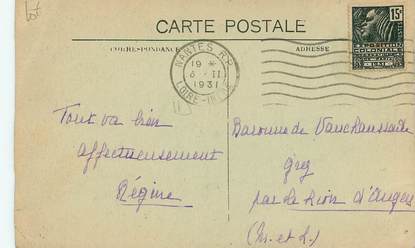 CARTE POSTALE
CORRESPONDANCE
ADRESSE
NANTES R.P.
19 *
6 - II
1931
LOIRE-INFRE
15c
EXPOSITION
COLONIALE
INTERNATIONALE
PARIS 1931
Tout va bien
affectueusement
Régine
Baronne de
Grez
par le Lion d'Angers
(M. et L.)